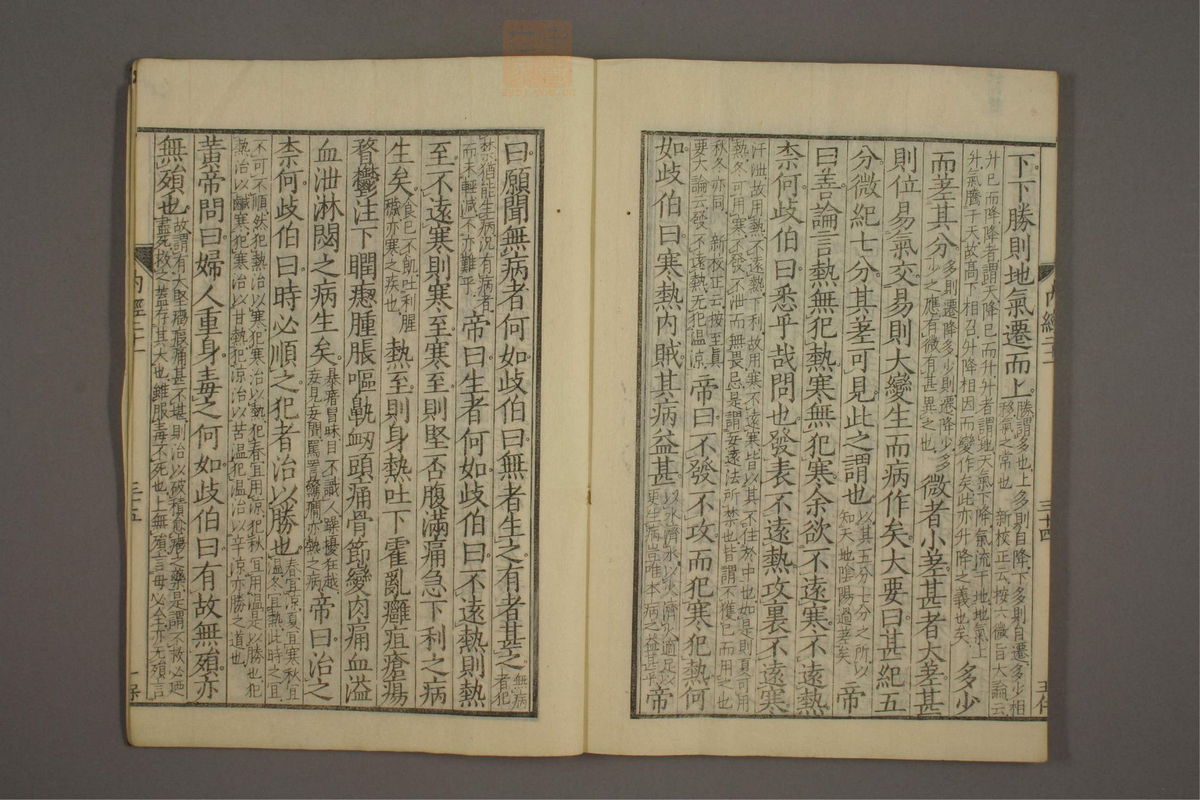 下下勝則地氣遷而上勝謂多也上多則自降下多則自遷多少相移氣之常也 新校正云按六微旨大論云
升已而降降者謂天降已而升升者謂地天氣下降氣流于地地氣上升氣騰于天故高下相召升降相因而變作矣此亦升降之義也矣 多少
而差其分多則遷降多少則遷降少多少之應有微有甚異之也 微者小差甚者大差甚
則位易氣交易則大變生而病作矣大要曰甚紀五
分微紀七分其差可見此之謂也以其五分七分之所以知天地陰陽過差矣 帝
曰善論言熱無犯熱寒無犯寒余欲不遠寒不遠熱
柰何歧伯曰悉乎哉問也發表不遠熱攻裏不遠寒
汗泄故用熱不遠熱下利故用寒不遠寒皆以其不住於中也如是則夏可用熱冬可用寒不發不泄而無畏忌是謂妄遠法所禁也皆謂不獲已而用之也
秋冬亦同 新校正云按至真要大論云發不遠熱无犯溫涼 帝曰不發不攻而犯寒犯熱何
如歧伯曰寒熱內賊其病益甚以水濟水以火濟火適足以更生病豈唯本病之益甚乎 帝
內經二十一
三十四
曰願聞無病者何如歧伯曰無者生之有者甚之無病者犯
禁猶能生病況有病者而未輕減不亦難乎 帝曰生者何如歧伯曰不遠熱則熱
至不遠寒則寒至寒至則堅否腹滿痛急下利之病
生矣食已不飢吐利腥穢亦寒之疾也 熱至則身熱吐下霍亂癰疽瘡瘍
瞀鬱注下瞤瘛腫脹嘔鼽衄頭痛骨節變肉痛血溢
血泄淋閟之病生矣暴瘖冒昧目不識人躁擾狂越妄見妄聞罵詈驚癇亦熱之病 帝曰治之
柰何歧伯曰時必順之犯者治以勝也春宜涼夏宜寒秋宜溫冬宜熱此時之宜
不可不順然犯熱治以寒犯寒治以熱犯春宜用涼犯秋宜用溫是以勝也犯熱治以鹹寒犯寒治以甘熱犯涼治以苦溫犯溫治以辛涼亦勝之道也
黃帝問曰婦人重身毒之何如歧伯曰有故無殞亦
無殞也故謂有大堅癥瘕痛甚不堪則治以破積愈癥之藥是謂不救必迺盡死救之蓋存其大也雖服毒不死也上無殞言母必全亦无殞言
內經二十一
三十五